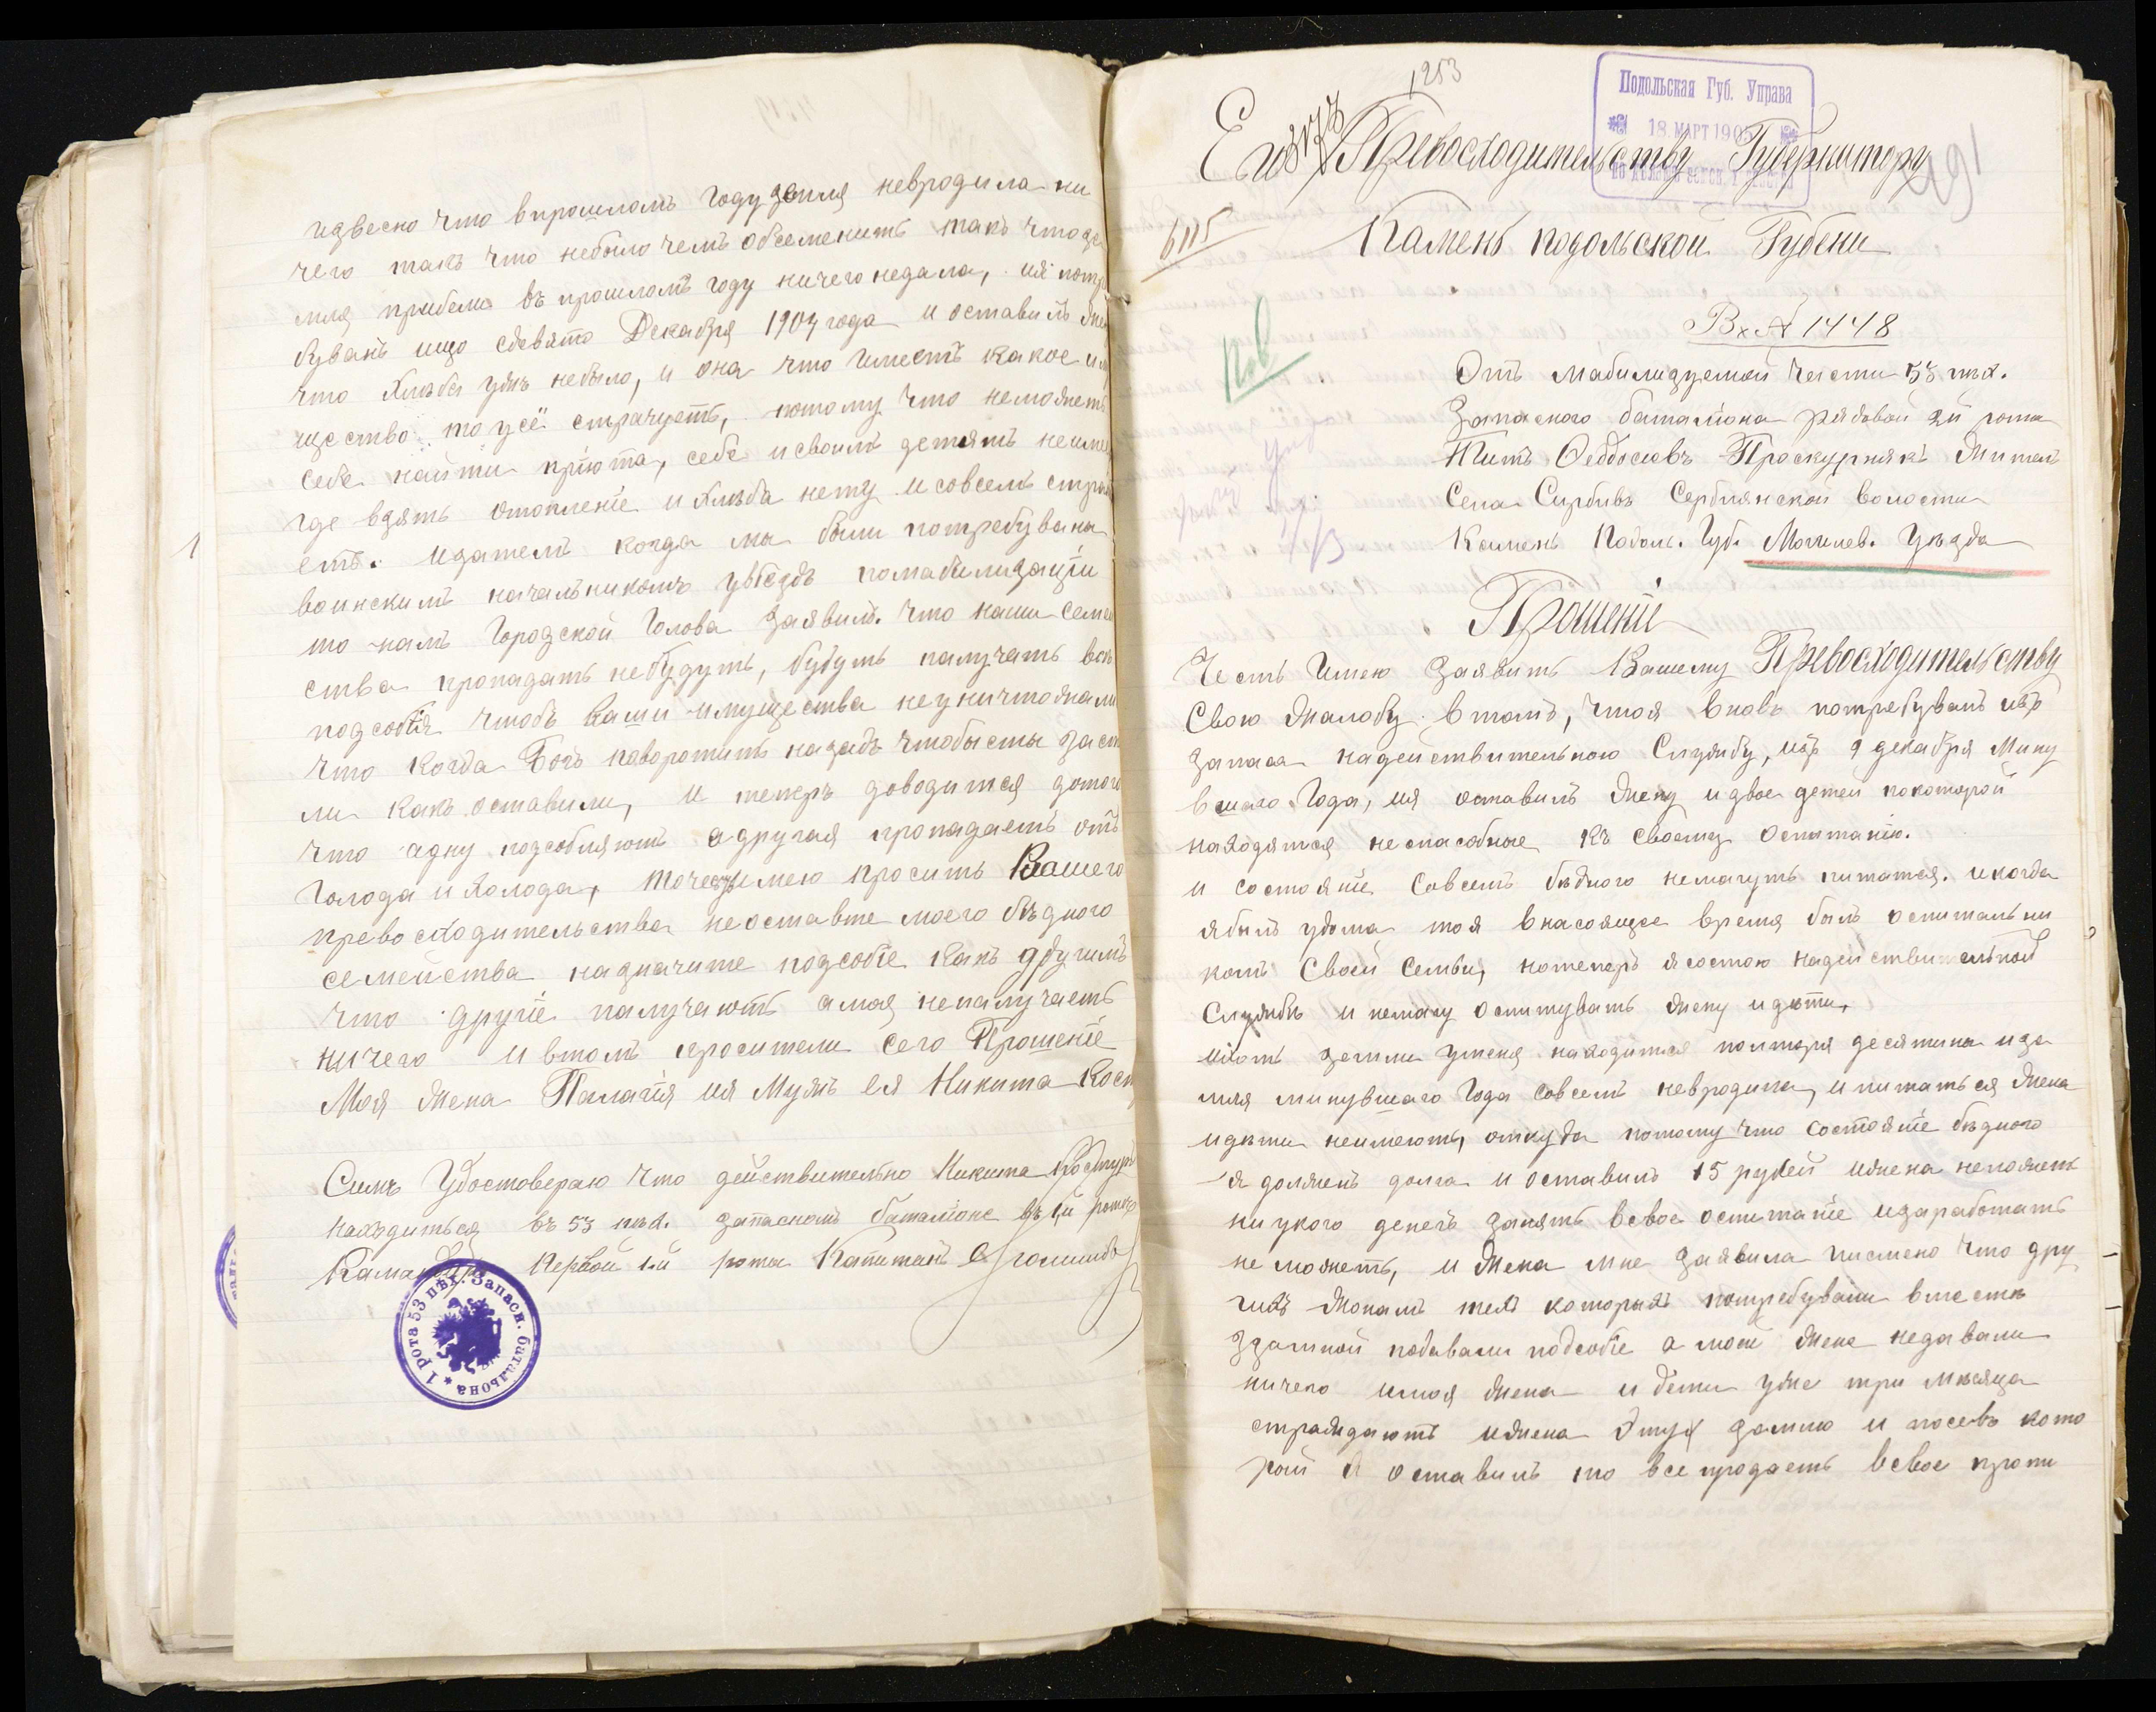 извесно что впрошломъ году земля невродила ни
чего такъ что небыло чемъ обсеменить такъ что зе
мля прибела въ прошломъ году ничего недала, ия потре
буванъ ищо сдевято Декабря 1904 года и оставилъ жену
что хлѣба ужъ небыло, и она что имеетъ какое иму
щество то усё страчуетъ, потому что неможетъ
себе найти пріюта, себе исвоимъ детямъ неиме
где взять отопленіе и хлѣба нету и совсемъ страж
етъ. изатемъ когда мы были потребувана
воинскимъ начальникомъ уѣздъ помабилизаціи
то намъ Городской Голова заявилъ. что наши семе
ства пропадать небудуть, будуть палучать всѣ
подсобія чтобъ ваши имущества неуничтожали
что когда Богъ поворотить назадъ чтобысты заст
ли какъ оставили, и теперъ доводится дотого
что адну подсобляютъ адругая пропадаетъ отъ
Голода и холода, имею просить Вашего
превосходительства неоставте моего бѣдного
семейства назначите подсобіе какъ другимъ
что другіе палучаютъ амоя непалучаетъ
ничего ивтомъ просители сего Прошеніе
Моя жена Палагія ия Мужъ ея Никита Кост
Симъ Удостовераю что действительно Никита
находиться въ 53 пѣх. запасномъ баталіоне въ 1й роте
Камандиръ Первой 1й роты Капитанъ
1 рота 53 пѣх. Запасн. баталіона
1
1253
Подольская Губ. Управа
18 МАРТ 1905
Его Превосходительству Губернатору
491
6115
Камень подольской Губени
Вх № 1448
Отъ мабилизуемой части 53 пѣх.
Запасного баталіона рядовой 2й роты
Титъ Феодосіевъ Проскурнякъ житель
Села Сирбивъ Сербиянской волости
Камень Подоль. Губ. Могилев. Уѣзда
Прошеніе
Честь Имею заявить Вашему Превосходительству
Свою жалобу втомъ, чтоя вновь потребуванъ изъ
запаса надействительною Службу, изъ 9 декабря Мину
вшаго Года, ия оставилъ жену идвое детей покоторой
находятся неспасобные къ своему Оспитанію.
и состояніе Совсемъ бѣдного немагуть питатся. икогда
ябылъ удома тоя внасоящее время былъ оспитальни
комъ Своей Семьи, нотеперъ ясостою надействительной
Службѣ и немагу Оспитувать жену идѣти,
ихоть земли уменя находится полтора десятина изе
мля минувшаго Года совсемъ невродила, и питаться жена
идѣти неимеютъ, откуда потому что состояніе бѣдного
я долженъ долга и оставилъ 15 рублей ижена неможетъ
ниукого денегъ занять всвое оспитаніе изаработать
не можетъ, и жена мне заявила писмено что дру
гихъ жонамъ техъ которыхъ потребували вместѣ
здамной подавали подсобіе а моей жене недавали
ничего имоя жена и дети уже три мѣсяца
страждаютъ ижена землю и посевъ кото
рой я оставилъ то все продаетъ всвое пропи